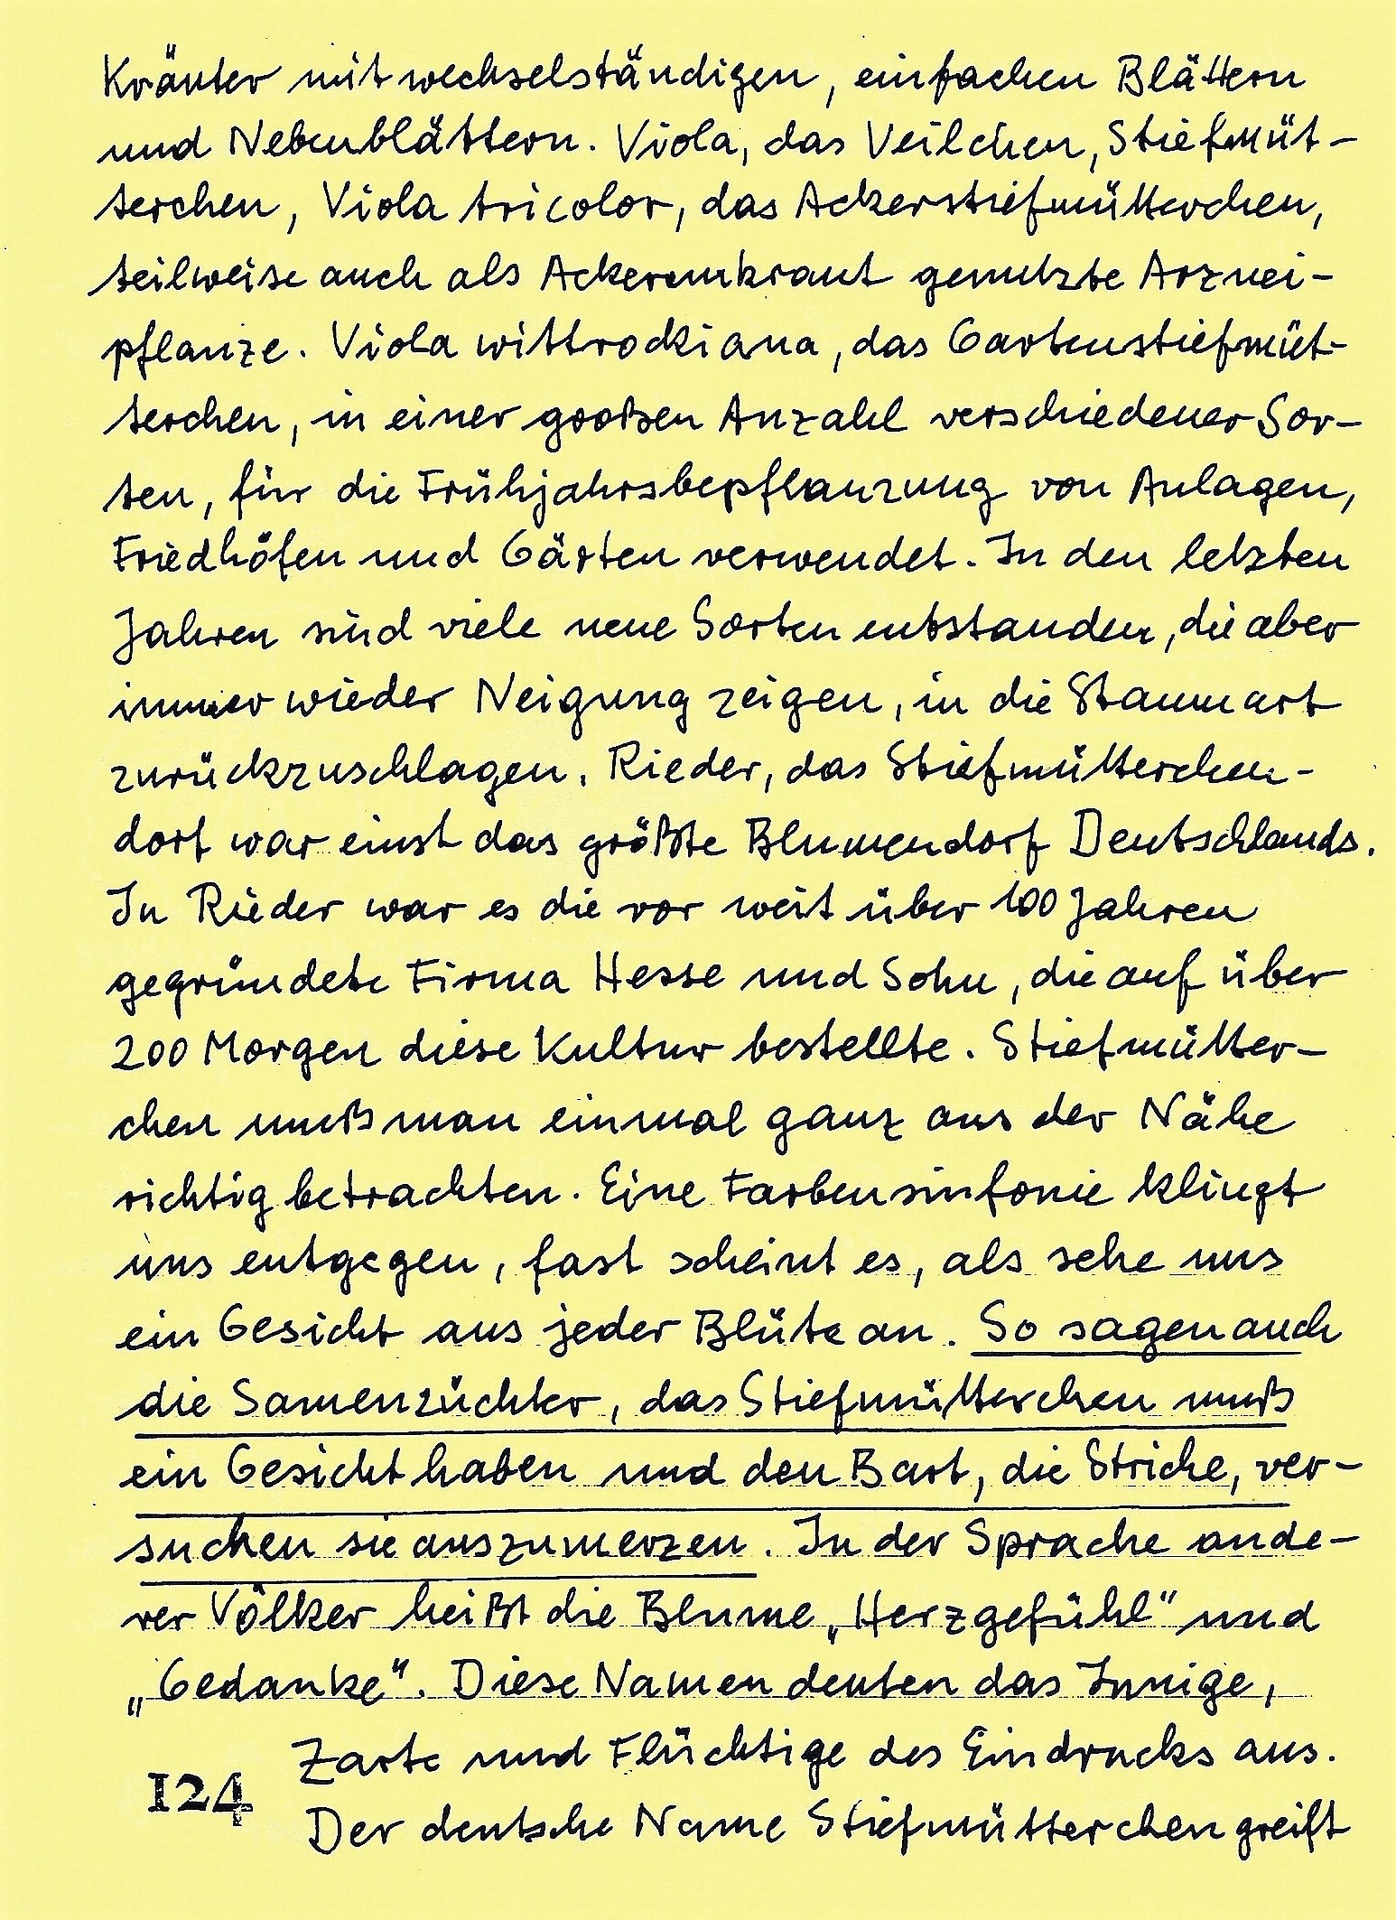 Kräuter mit wechselständigen, einfachen Blättern
und Nebenblättern. Viola, das Veilchen, Stiefmüt-
terchen, Viola tricolor, das Ackerstiefmütterchen,
teilweise auch als Ackerunkraut genutzte Arznei-
pflanze. Viola wittrockiana, das Gartenstiefmüt-
terchen, in einer großen Anzahl verschiedener Sor-
ten, für die Frühjahrsbepflanzung von Anlagen,
Friedhöfen und Gärten verwendet. In den letzten
Jahren sind viele neue Sorten entstanden, die aber
immer wieder Neigung zeigen, in die Stammart
zurückzuschlagen. Rieder, das Stiefmütterchen-
dorf war einst das größte Blumendorf Deutschlands.
In Rieder war es die vor weit über 100 Jahren
gegründete Firma Hesse und Sohn, die auf über
200 Morgen diese Kultur bestellte. Stiefmütter-
chen muß man einmal ganz aus der Nähe
richtig betrachten. Eine Farbensinfonie klingt
uns entgegen, fast scheint es, als sehe uns
ein Gesicht aus jeder Blüte an. So sagen auch
die Samenzüchter, das Stiefmütterchen muß
ein Gesicht haben und den Bart, die Striche, ver-
suchen sie auszumerzen. In der Sprache ande-
rer Völker heißt die Blume „Herzgefühl" und
„Gedanke". Diese Namen deuten das Innige,
Zarte und Flüchtige des Eindrucks aus.
124 Der deutsche Name Stiefmütterchen greift